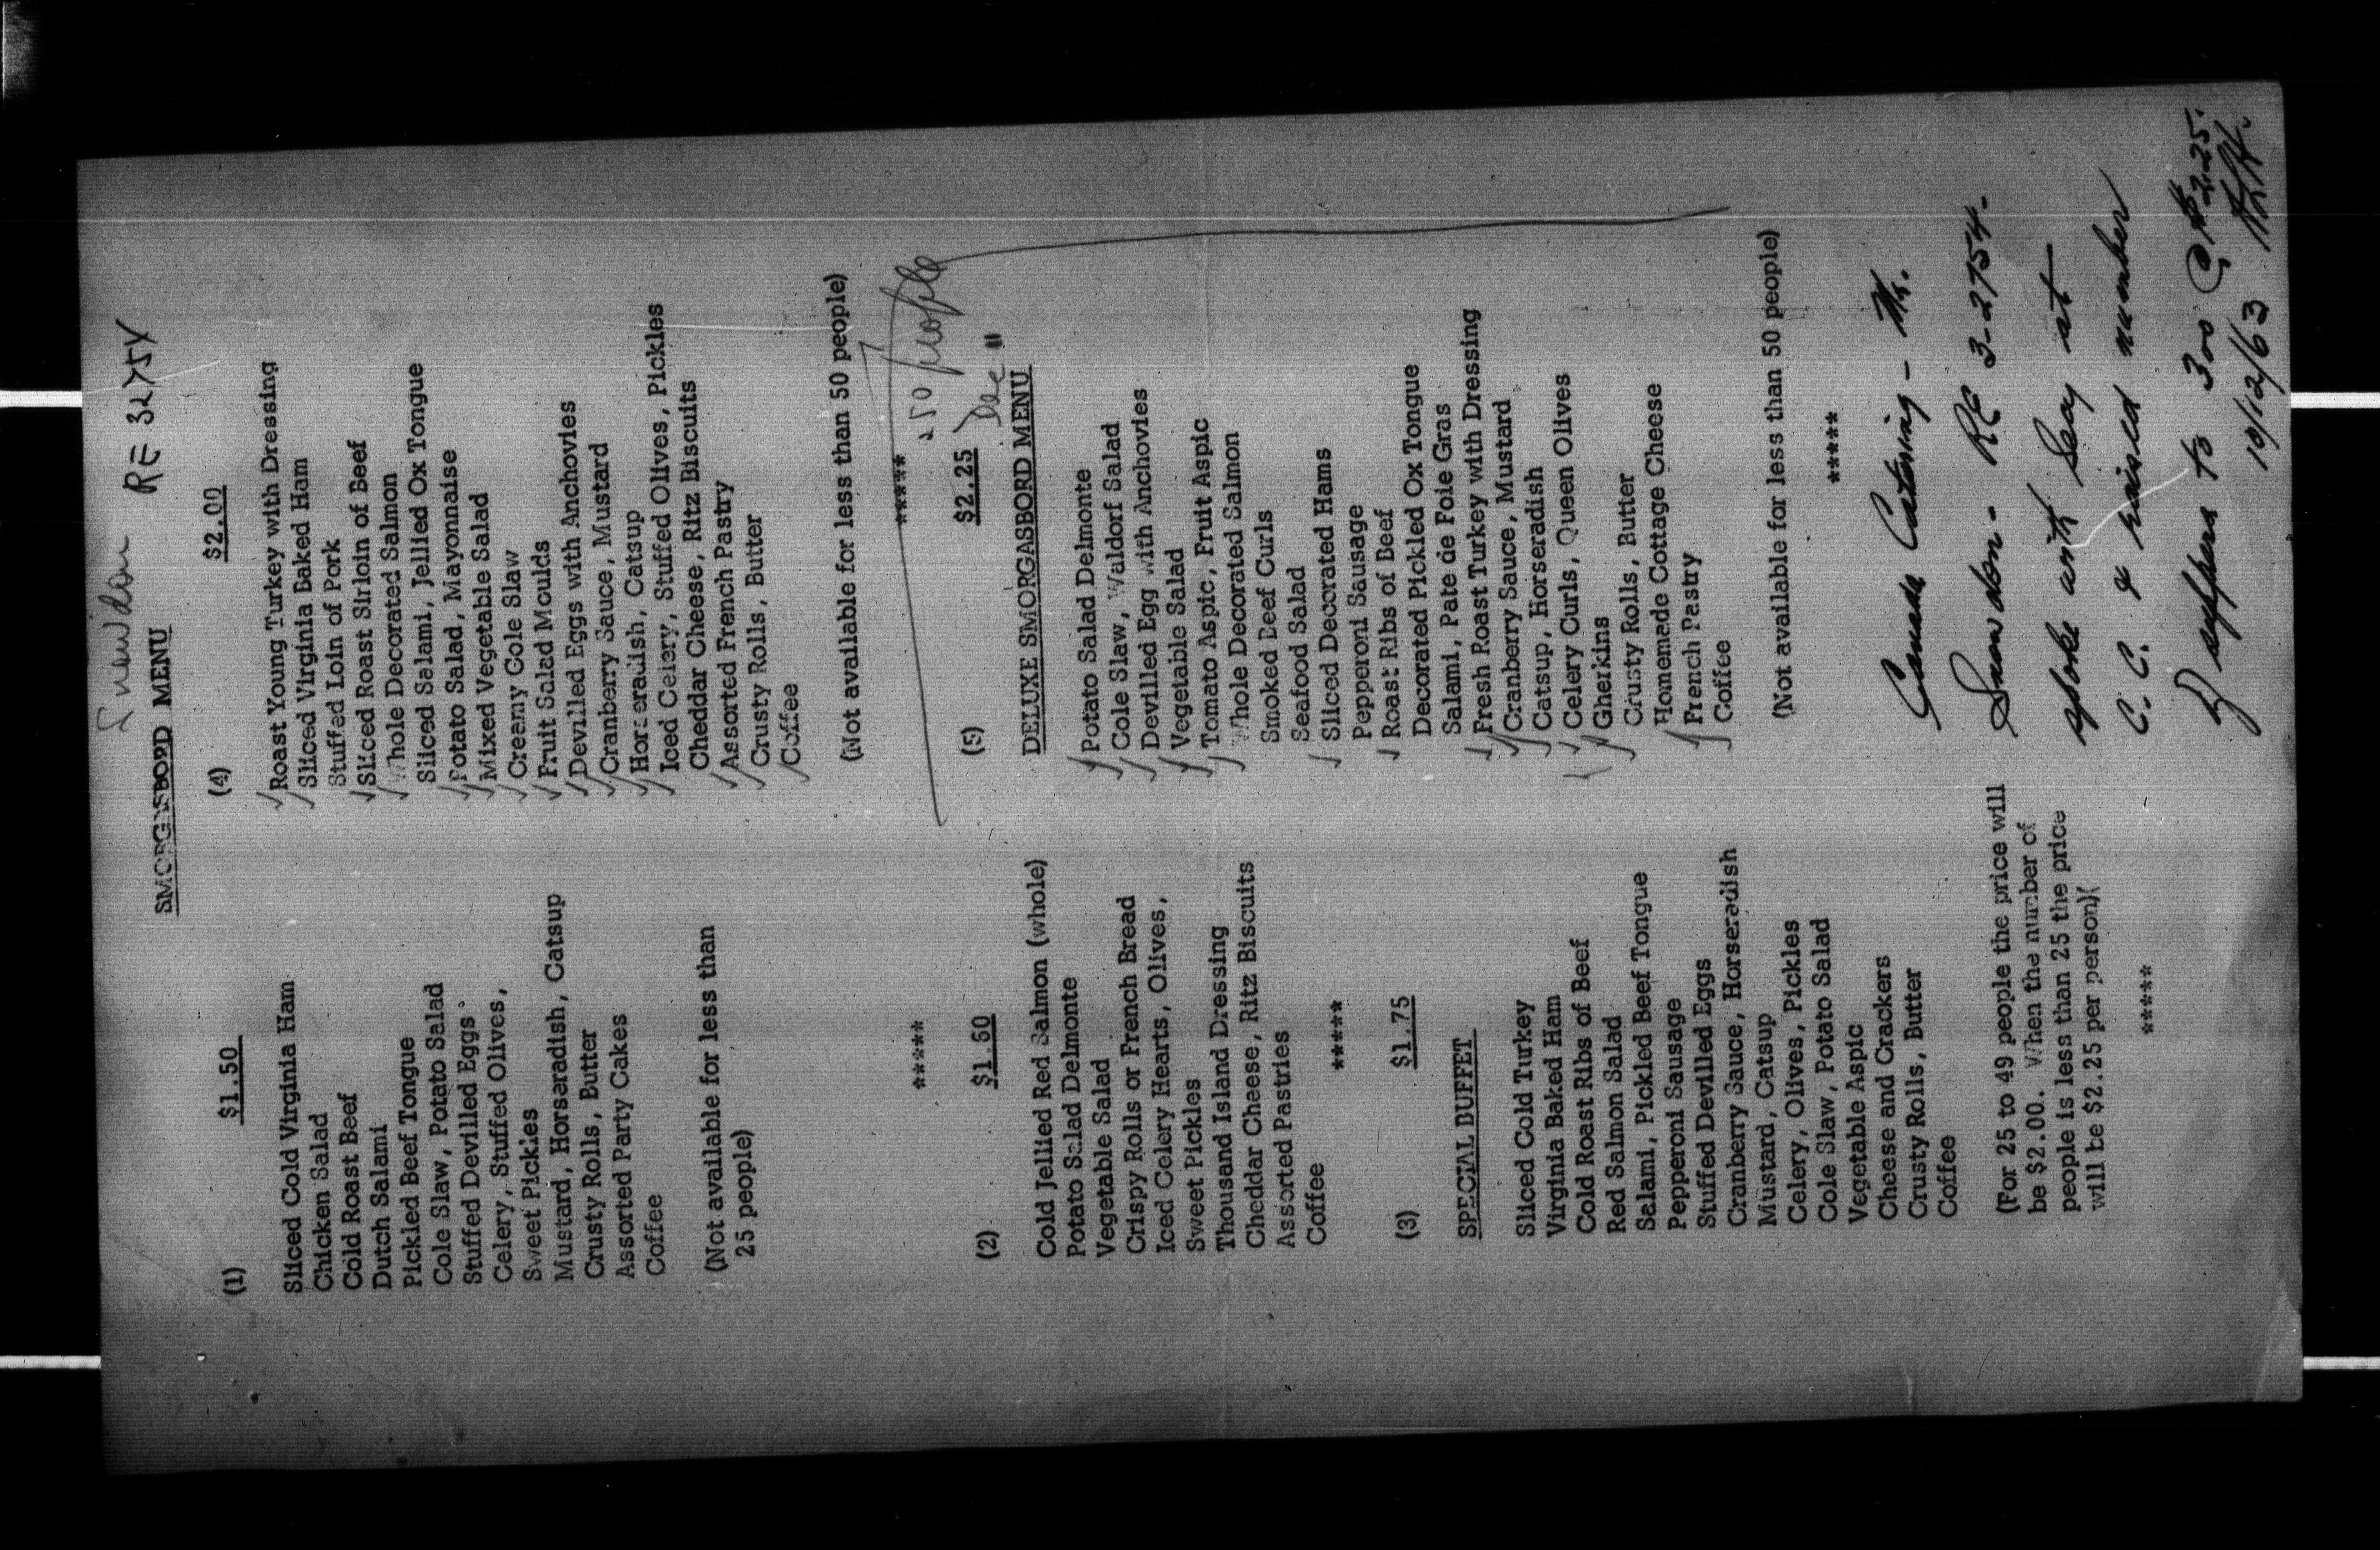 Snowdon RE 3275X
SMORGASBORD MENU
(1) $1.50
Sliced Cold Virginia Ham
Chicken Salad
Cold Roast Beef
Dutch Salami
Pickled Beef Tongue
Cole Slaw, Potato Salad
Stuffed Devilled Eggs
Celery, Stuffed Olives,
Sweet Pickles
Mustard, Horseradish, Catsup
Crusty Rolls, Butter
Assorted Party Cakes
Coffee
(Not available for less than
25 people)
*****
(2) $1.60
Cold Jellied Red Salmon (whole)
Potato Salad Delmonte
Vegetable Salad
Crispy Rolls or French Bread
Iced Celery Hearts, Olives,
Sweet Pickles
Thousand Island Dressing
Cheddar Cheese, Ritz Biscuits
Assorted Pastries
Coffee
*****
(3) $1.75
SPECIAL BUFFET
Sliced Cold Turkey
Virginia Baked Ham
Cold Roast Ribs of Beef
Red Salmon Salad
Salami, Pickled Beef Tongue
Pepperoni Sausage
Stuffed Devilled Eggs
Cranberry Sauce, Horseradish
Mustard, Catsup
Celery, Olives, Pickles
Cole Slaw, Potato Salad
Vegetable Aspic
Cheese and Crackers
Crusty Rolls, Butter
Coffee
(For 25 to 49 people the price will
be $2.00. When the number of
people is less than 25 the price
will be $2.25 per person)(
*****
(4) $2.00
Roast Young Turkey with Dressing
Sliced Virginia Baked Ham
Stuffed Loin of Pork
Sliced Roast Sirloin of Beef
Whole Decorated Salmon
Sliced Salami, Jellied Ox Tongue
Potato Salad, Mayonnaise
Mixed Vegetable Salad
Creamy Cole Slaw
Fruit Salad Moulds
Devilled Eggs with Anchovies
Cranberry Sauce, Mustard
Horseradish, Catsup
Iced Celery, Stuffed Olives, Pickles
Cheddar Cheese, Ritz Biscuits
Assorted French Pastry
Crusty Rolls, Butter
Coffee
(Not available for less than 50 people)
*****
250 people
(5) $2.25 Dec
DELUXE SMORGASBORD MENU
Potato Salad Delmonte
Cole Slaw, Waldorf Salad
Devilled Egg with Anchovies
Vegetable Salad
Tomato Aspic, Fruit Aspic
Whole Decorated Salmon
Smoked Beef Curls
Seafood Salad
Sliced Decorated Hams
Pepperoni Sausage
Roast Ribs of Beef
Decorated Pickled Ox Tongue
Salami, Pate de Foie Gras
Fresh Roast Turkey with Dressing
Cranberry Sauce, Mustard
Catsup, Horseradish
Celery Curls, Queen Olives
Gherkins
Crusty Rolls, Butter
Homemade Cottage Cheese
French Pastry
Coffee
(Not available for less than 50 people)
*****
Canada Catering - Mr.
Snowdon - RE 3-2754 -
spoke with Say at
C.C. & raised number
of suppers to 300 @ $2.25.
10/12/63